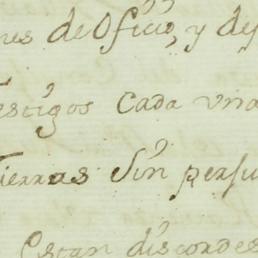 nes de Oficio, y de
estigos Cada vna
Tierras Sin perju
Estan discordes